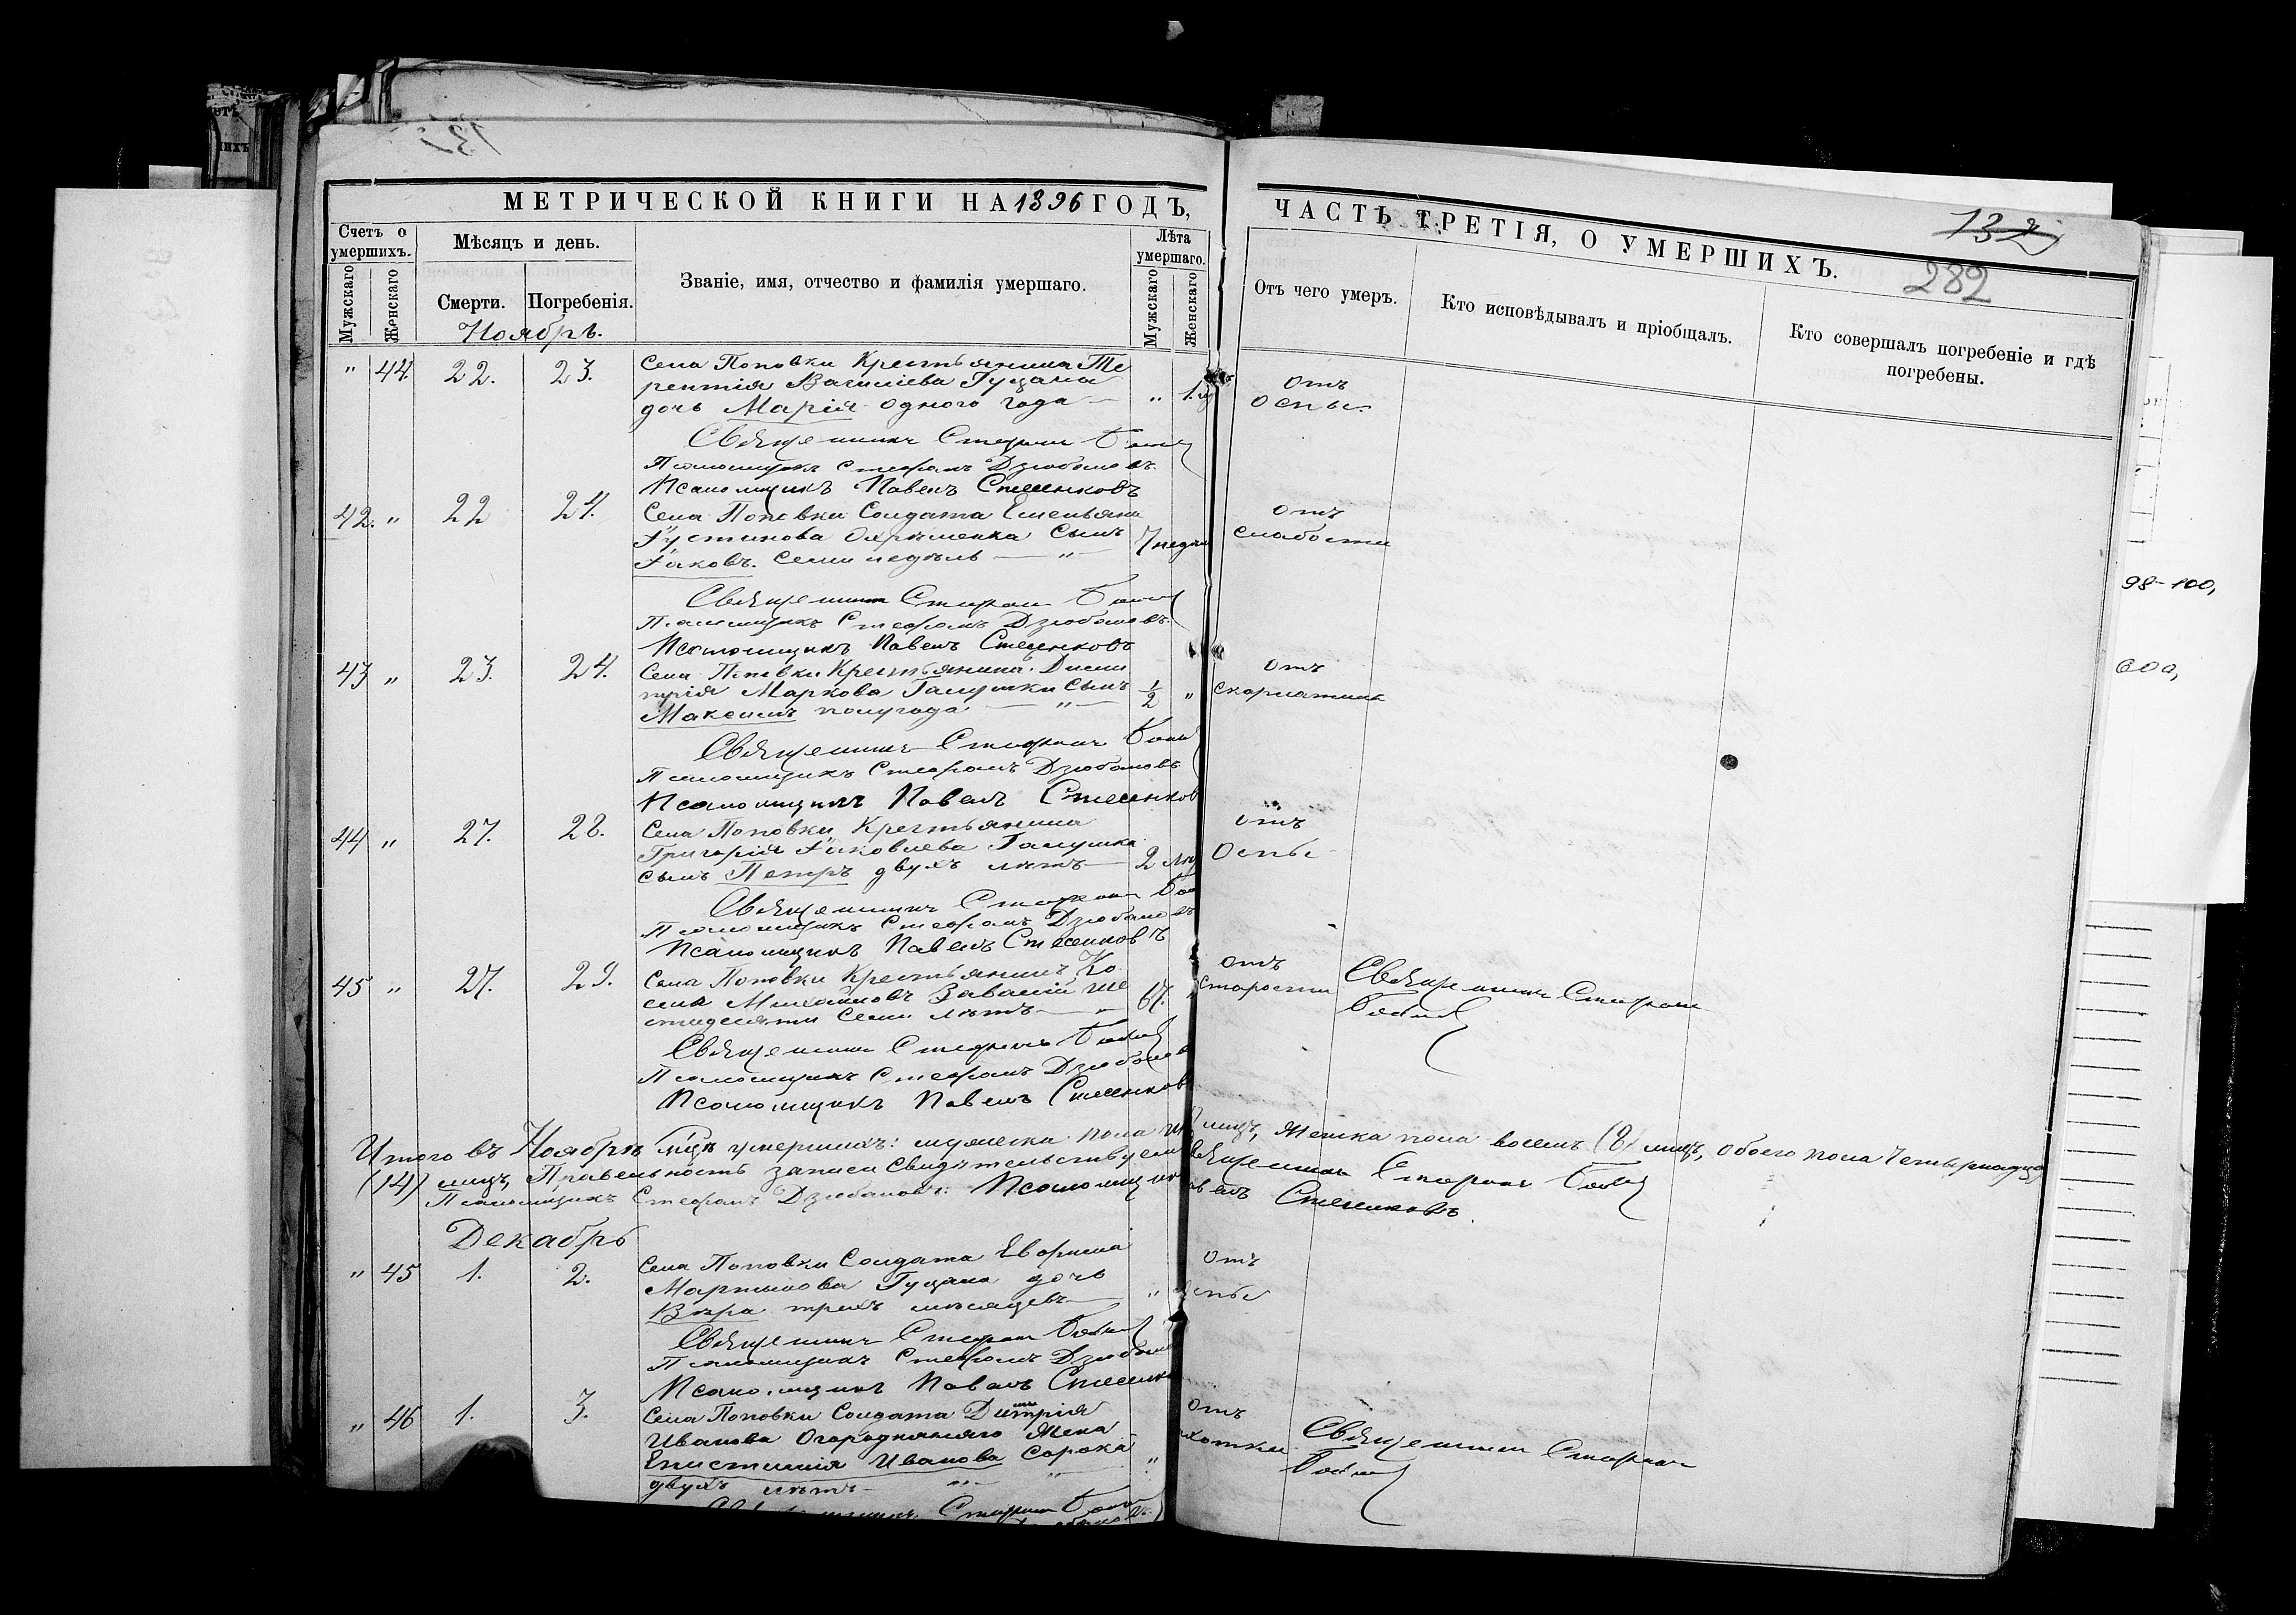 МЕТРИЧЕСКОЙ КНИГИ НА 1896 ГОДЪ,
ЧАСТЬ ТРЕТІЯ, О УМЕРШИХЪ.
132
282
Счетъ о умершихъ.
Мѣсяцъ и день.
Званіе, имя, отчество и фамилія умершаго.
Лѣта умершаго.
Мужскаго
Женскаго
Смерти.
Погребенія.
Мужскаго
Женскаго
Отъ чего умеръ.
Кто исповѣдывалъ и пріобщалъ.
Кто совершалъ погребеніе и гдѣ погребены.
Ноябрь.
" 44. 22. 23. Села Поповки Крестьянина Те
рентія Василіева Гуцана
дочь Марія одного года " 1. отъ
оспы.
Священникъ Стефанъ
Псаломщикъ Стефанъ Дзюбановъ.
Псаломщикъ Павелъ Стеценковъ
42. " 22 24. Села Поповки Солдата Емельяна
Іустинова Охрименка сынъ
Іаковъ. семи недѣль — " — 7 недѣл отъ
слабости
Священникъ Стефанъ
Псаломщикъ Стефанъ Дзюбановъ.
Псаломщикъ Павелъ Стеценковъ
43 " 23. 24. Села Поповки Крестьянина Дими
трія Маркова Галушки сынъ
Максимъ полугода — " — 1/2 " отъ
скарлатины
Священникъ Стефанъ
Псаломщикъ Стефанъ Дзюбановъ
Псаломщикъ Павелъ Стеценков
44 " 27. 28. Села Поповки Крестьянина
Григорія Іаковлева Галушка
сынъ Петръ двухъ лѣтъ — 2 отъ
Оспы
Священникъ Стефанъ
Псаломщикъ Стефанъ Дзюбановъ
Псаломщикъ Павелъ Стеценковъ
45 " 27. 29. Села Поповки Крестьянинъ Ко
сма Михайловъ Завалій ше
стидесяти семи лѣтъ — " 67. " отъ
старости
Священникъ Стефанъ
Священникъ Стефанъ
Псаломщикъ Стефанъ Дзюбанов
Псаломщикъ Павелъ Стеценков
Итого въ Ноябрѣ м-цѣ умершихъ: мужеска пола лицъ, женска пола восемь (8) лицъ, обоего пола четырнадца
(14) лицъ, Правельность записи свидѣтельствуем Священникъ Стефанъ
Псаломщикъ Стефанъ Дзюбановъ. Псаломщик Павелъ Стеценковъ.
Декабрь
" 45 1. 2. Села Поповки Солдата Евфима
Мартынова Гуцана дочь
Вѣра трехъ мѣсяцевъ — " отъ
оспы
Священникъ Стефанъ
Псаломщикъ Стефанъ Дзюбан
Псаломщикъ Павелъ Стеценк
" 46 1. 3. Села Поповки Солдата Димитрія
Иванова Огороднянаго Жена
Епистимія Иванова сорока
двухъ лѣтъ — " — " отъ
чахотки
Священникъ Стефанъ
Стефанъ
98-100,
600,